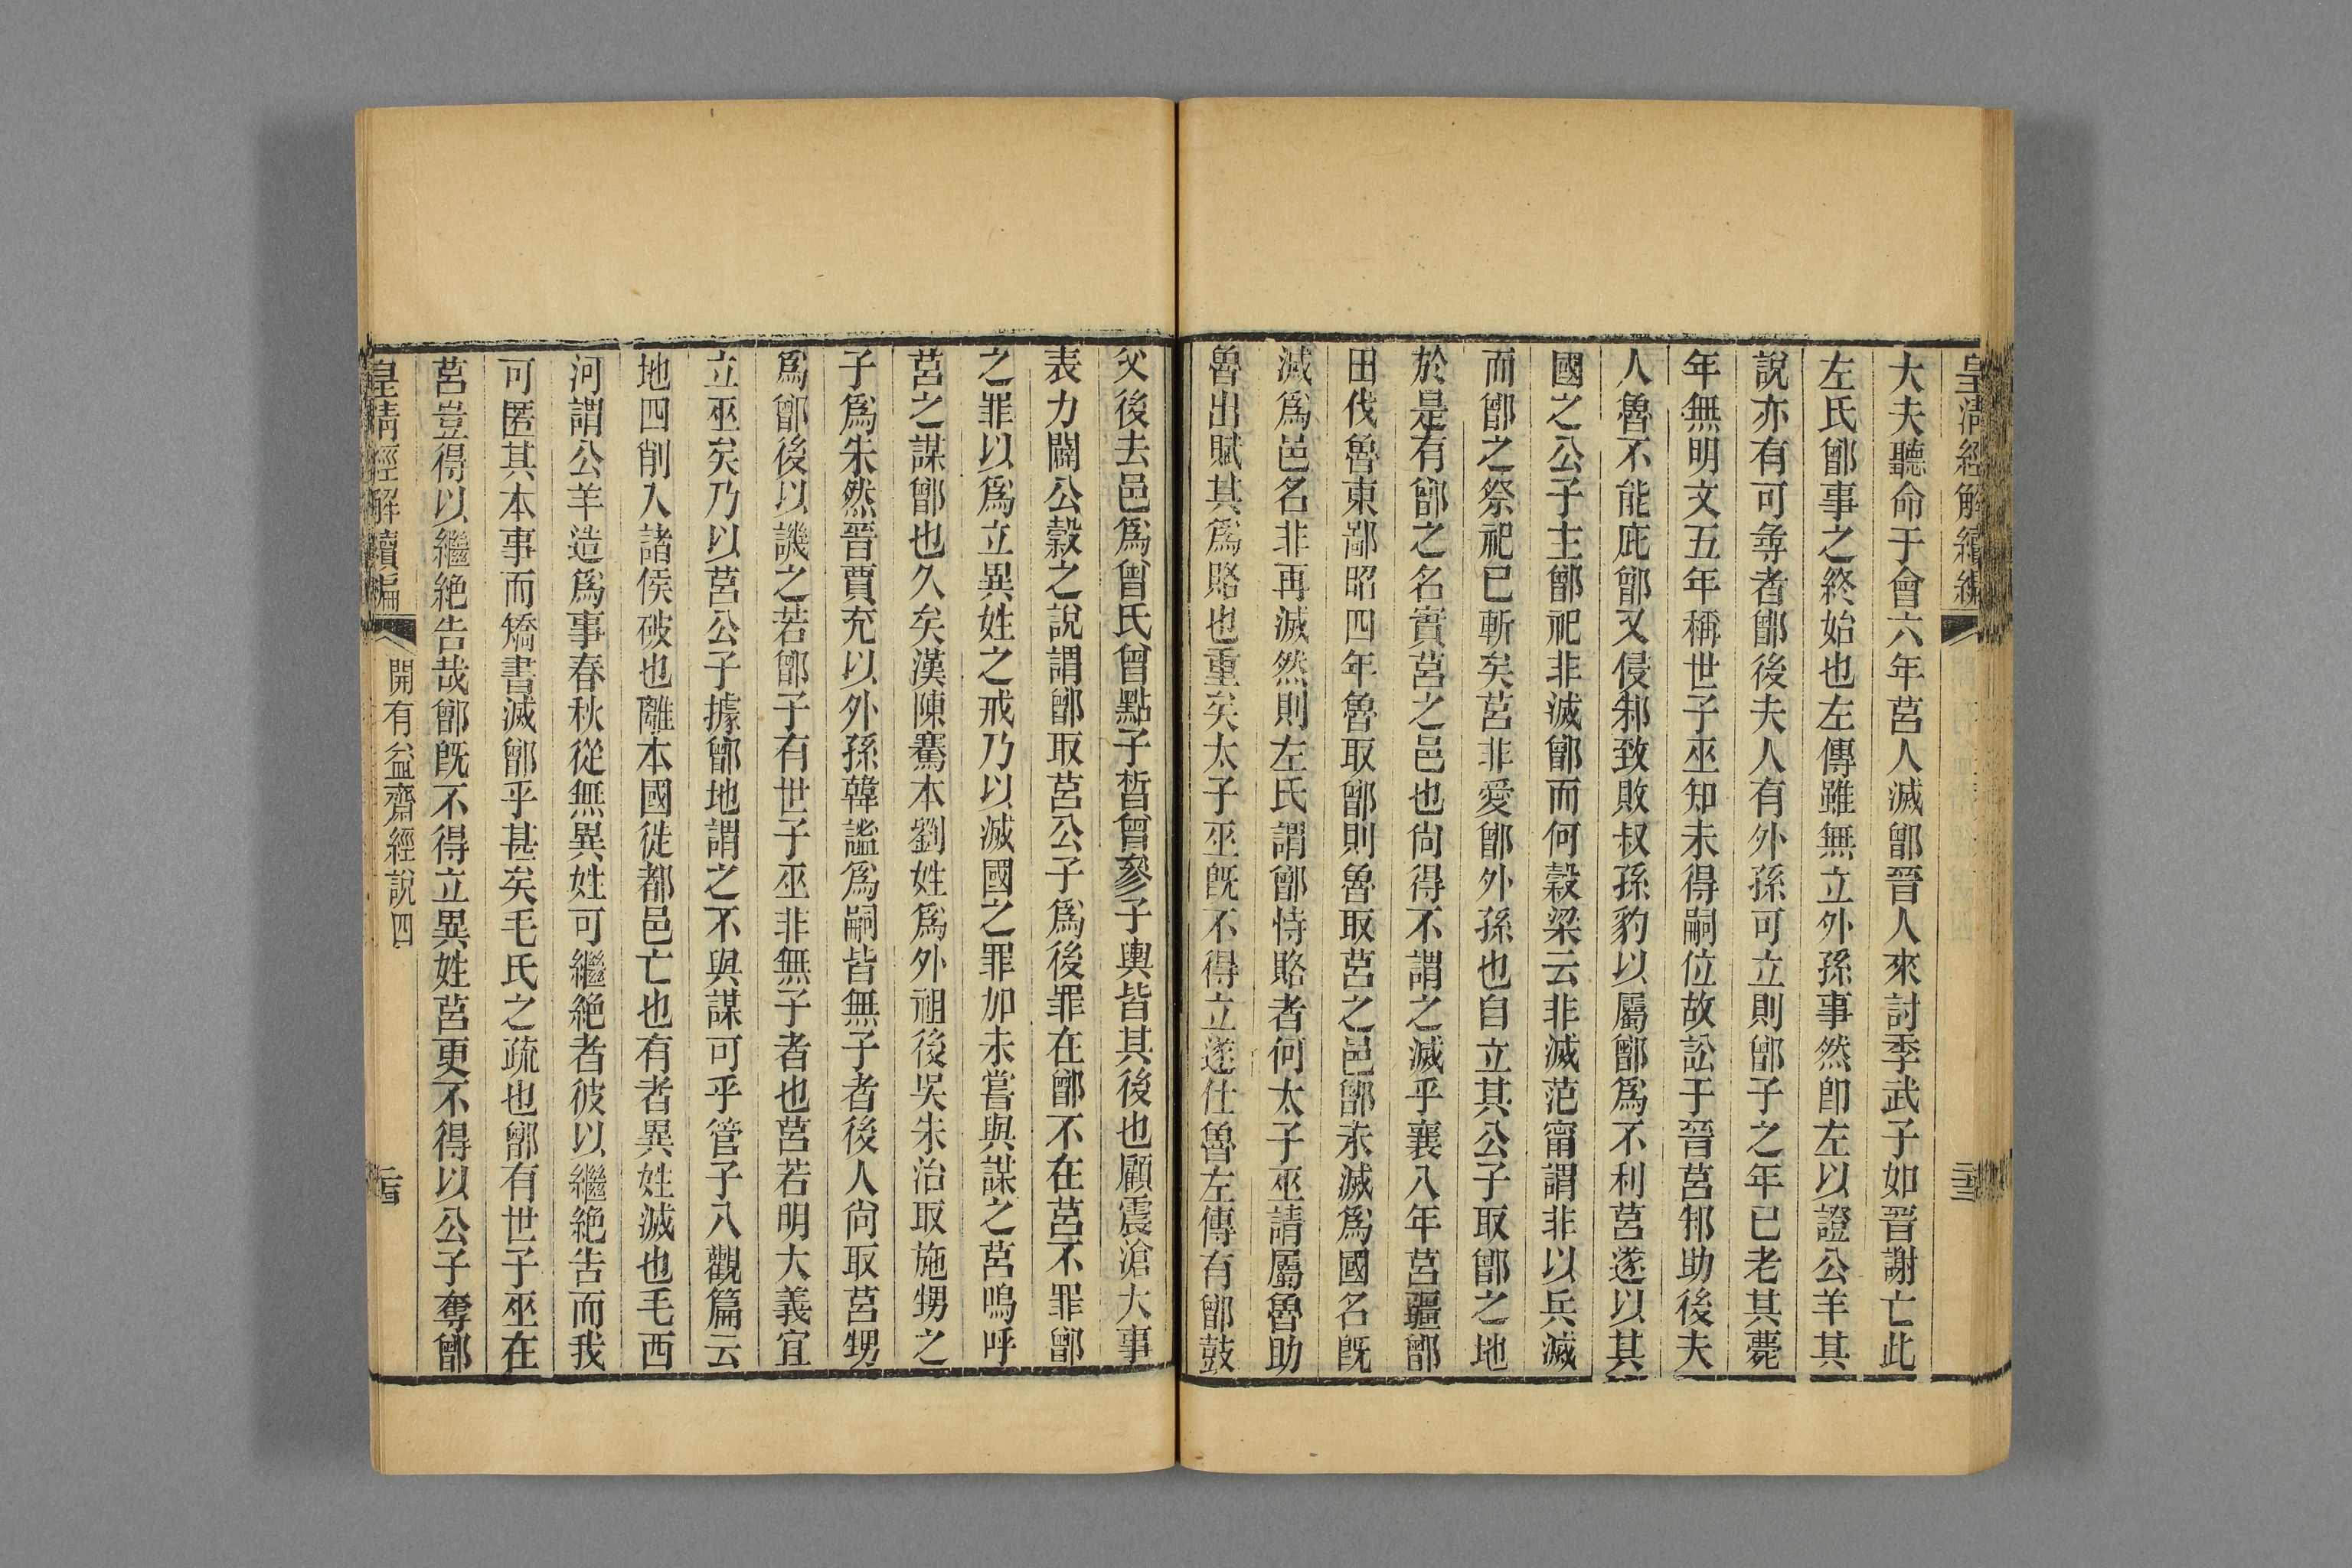 皇清經解續編
大夫聽命于會六年莒人滅鄫晉人來討季武子如晉謝亡此
左氏鄫事之終始也左傳雖無立外孫事然卽左以證公羊其
說亦有可尋者鄫後夫人有外孫可立則鄫子之年已老其薨
年無明文五年稱世子巫知未得嗣位故訟于晉莒邾助後夫
人魯不能庇鄫又侵邾致敗叔孫豹以屬鄫爲不利莒遂以其
國之公子主鄫祀非滅鄫而何穀梁云非滅范甯謂非以兵滅
而鄫之祭祀已斬矣莒非愛鄫外孫也自立其公子取鄫之地
於是有鄫之名實莒之邑也尙得不謂之滅乎襄八年莒疆鄫
田伐魯東鄙昭四年魯取鄫則魯取莒之邑鄫未滅爲國名旣
滅爲邑名非再滅然則左氏謂鄫恃賂者何太子巫請屬魯助
魯出賦其爲賂也重矣太子巫旣不得立遂仕魯左傳有鄫鼓
父後去邑爲曾氏曾點子晳曾參子輿皆其後也顧震滄大事
表力闢公穀之說謂鄫取莒公子爲後罪在鄫不在莒不罪鄫
之罪以爲立異姓之戒乃以滅國之罪加未嘗與謀之莒嗚呼
莒之謀鄫也久矣漢陳騫本劉姓爲外祖後吳朱治取施甥之
子爲朱然晉賈充以外孫韓謐爲嗣皆無子者後人尙取莒甥
爲鄫後以譏之若鄫子有世子巫非無子者也莒若明大義宜
立巫矣乃以莒公子據鄫地謂之不與謀可乎管子八觀篇云
地四削入諸侯破也離本國徙都邑亡也有者異姓滅也毛西
河謂公羊造爲事春秋從無異姓可繼絶者彼以繼絶告而我
可匿其本事而矯書滅鄫乎甚矣毛氏之疏也鄫有世子巫在
莒豈得以繼絶告哉鄫旣不得立異姓莒更不得以公子奪鄫
皇清經解續編
開有益齋經說四